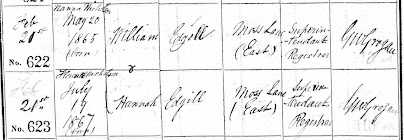 Feb
21st
No. 622
May 20
1865
(born)
William
Edgill
Moss Lane
(East)
Superin-
tendent
Registrar
Feb
21st
No. 623
July
17
1867
(born)
Hannah
Edgill
Moss Lane
(East)
Superin-
tendent
Registrar